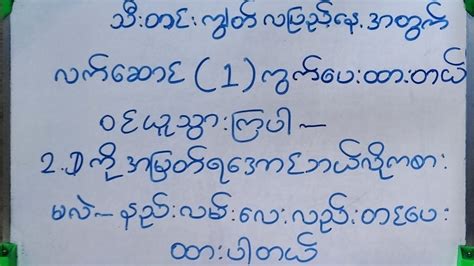 သီးတင်းကျွတ်လပြည့်နေ့အတွက်
လက်ဆောင် (1) ကွက်ပေးထားတယ်
ဝင်ယူသွားကြပါ ~
2.D ကို အမြတ်ရအောင်ဘယ်လိုကစား
မလဲ ~ နည်းလမ်းလေးလည်းတင်ပေး
ထားပါတယ်